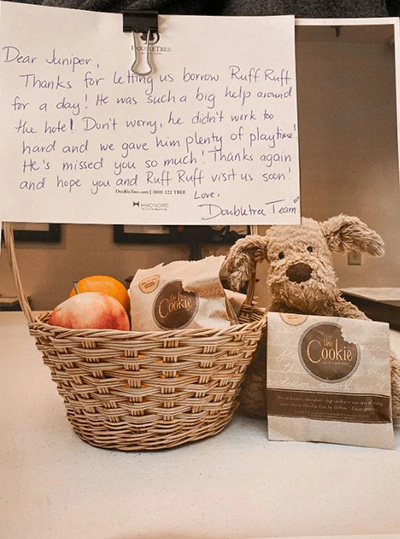 DOUBLETREE
Dear Juniper,
Thanks for letting us borrow Ruff Ruff
for a day! He was such a big help around
the hotel. Don't worry, he didn't work too
hard and we gave him plenty of playtime!
He's missed you so much! Thanks again
and hope you and Ruff Ruff visit us soon!
Love,
Doubletree Team
DoubleTree.com | 800 222 TREE
HHONORS
the
Cookie
the
Cookie